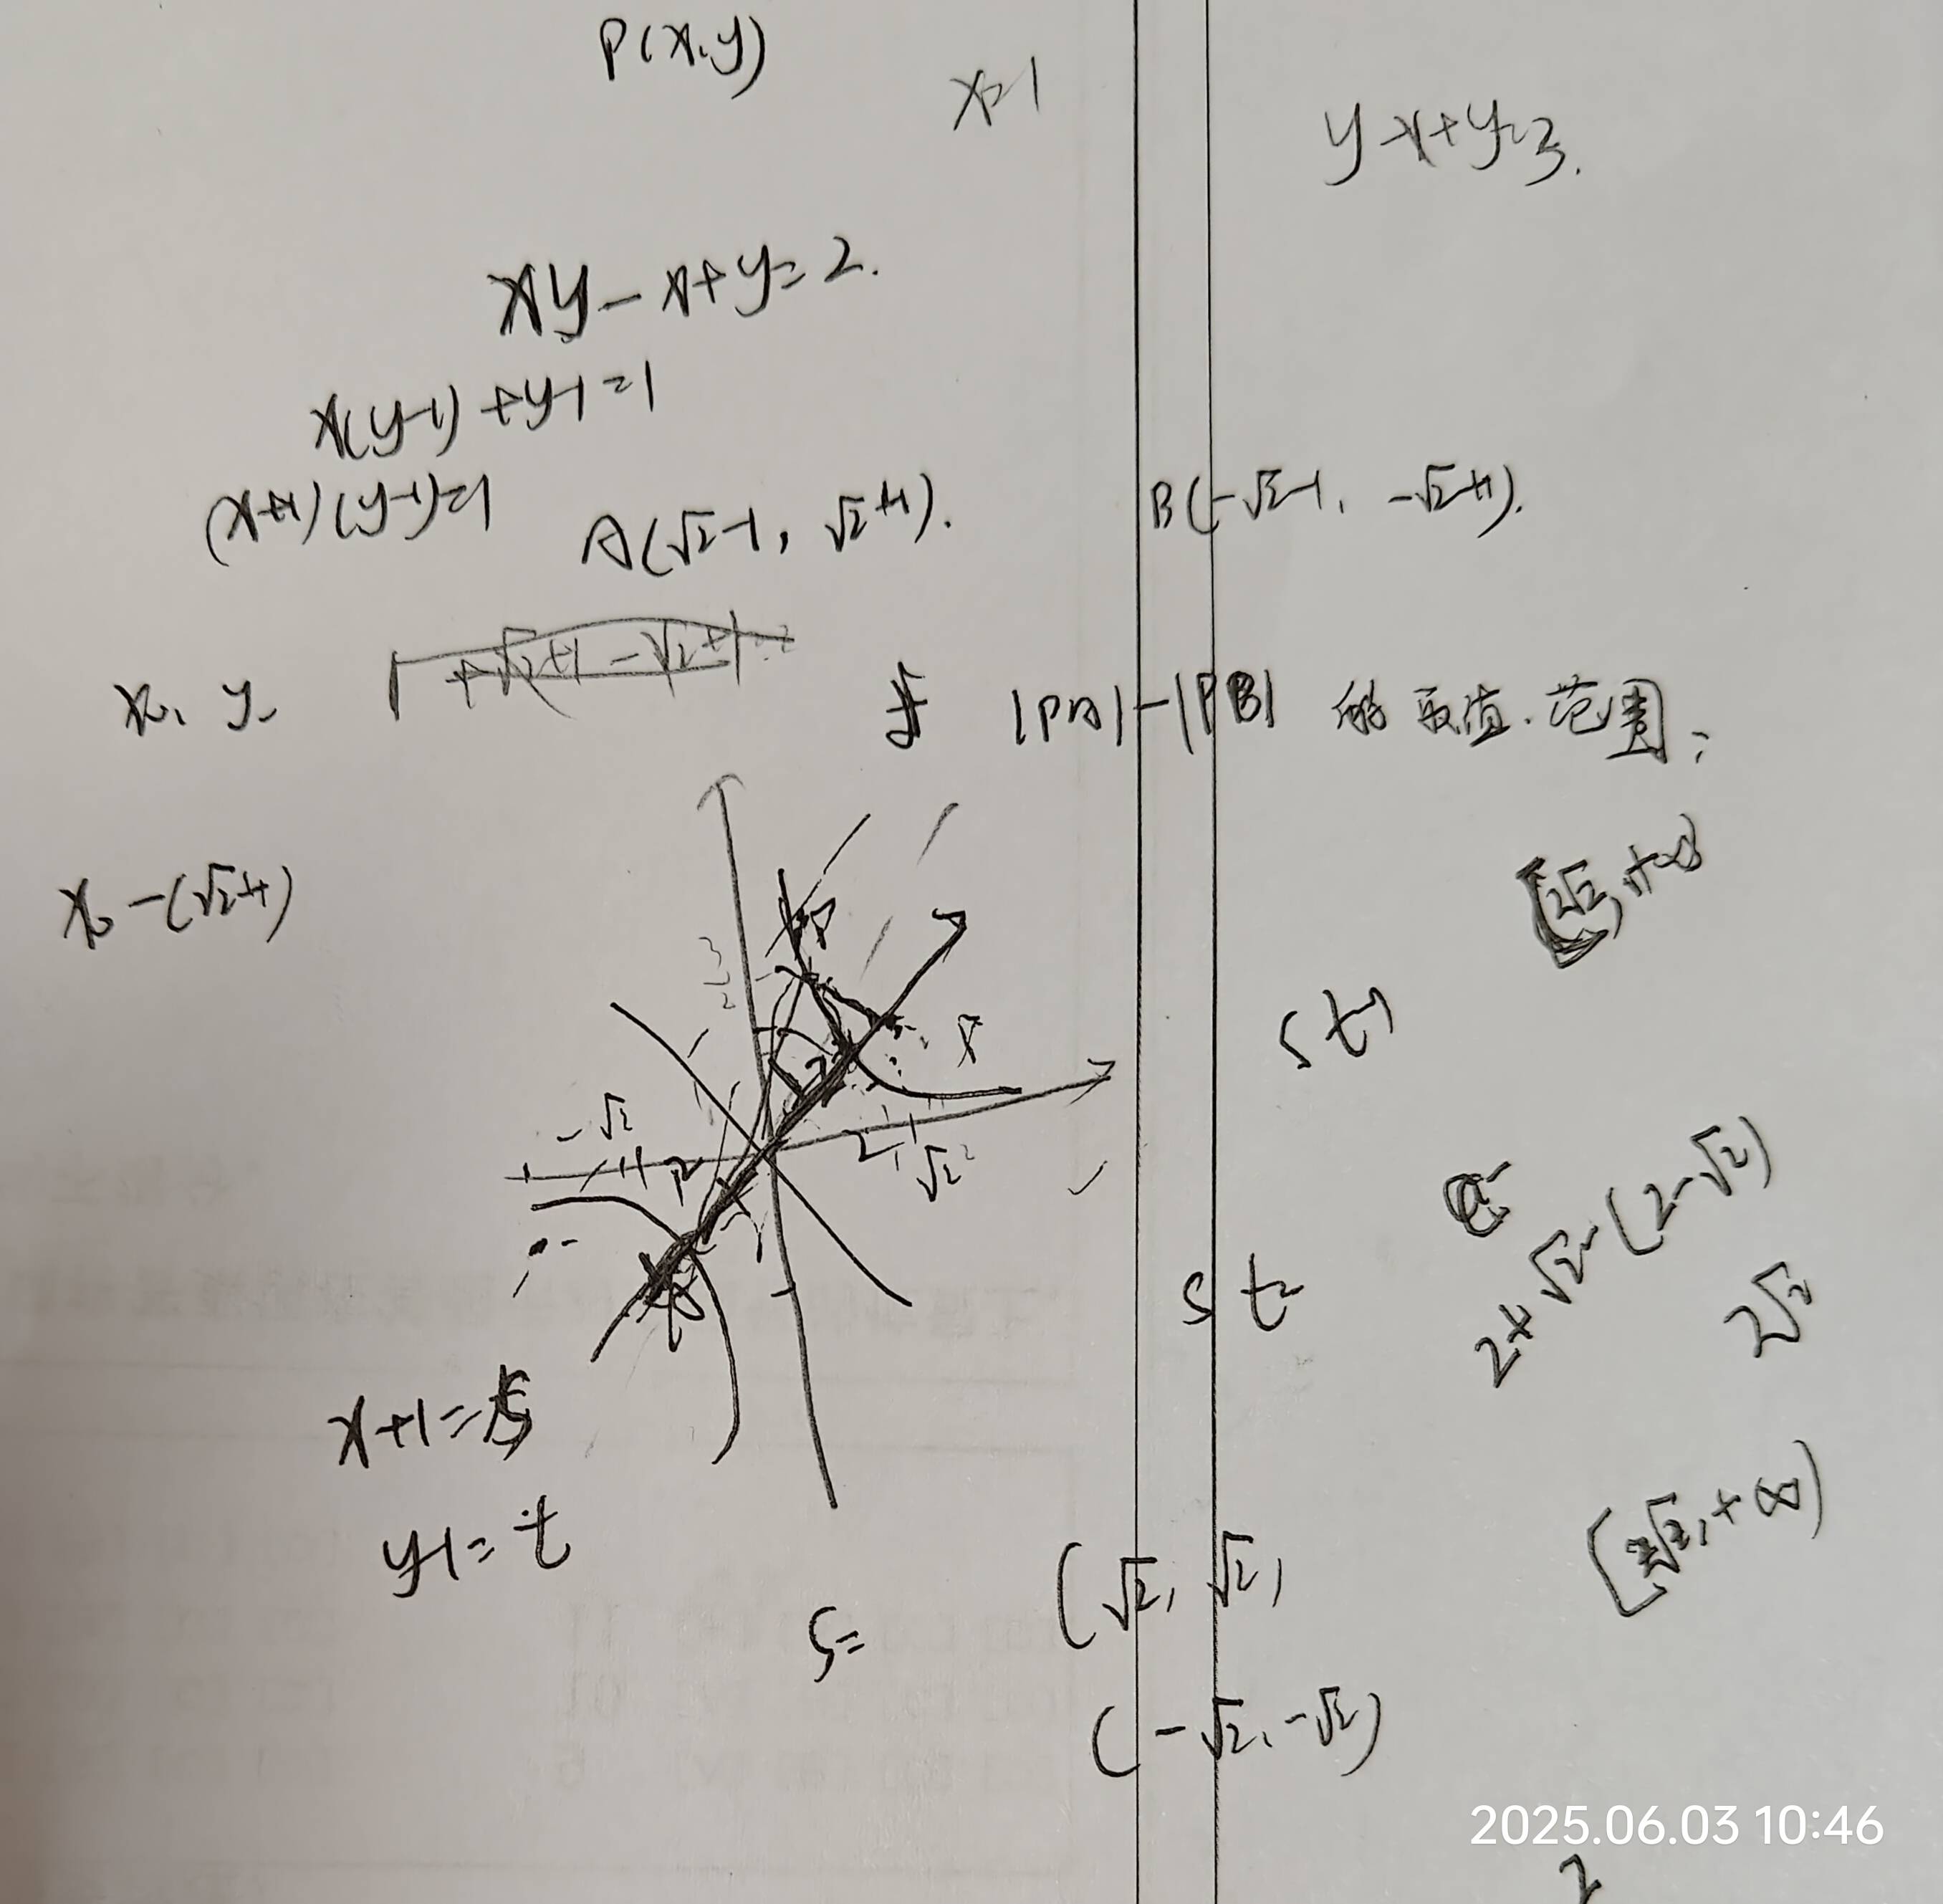 P(x,y)
x=1
y-x+y=3.
xy-x+y=2.
x(y-1)+y-1=1
(x+1)(y-1)=1
A(√2-1, √2+1).
B(-√2-1, -√2+1).
x₀, y₀
求 |PA|-|PB| 的取值范围:
x₀-(√2+1)
[2√2,+∞)
st
-√2
2
√2
2
st
2+√2-(2-√2)
2√2
x+1=s
y-1=t
[2√2,+∞)
(√2, √2)
s=
(-√2,-√2)
2025.06.03 10:46
2